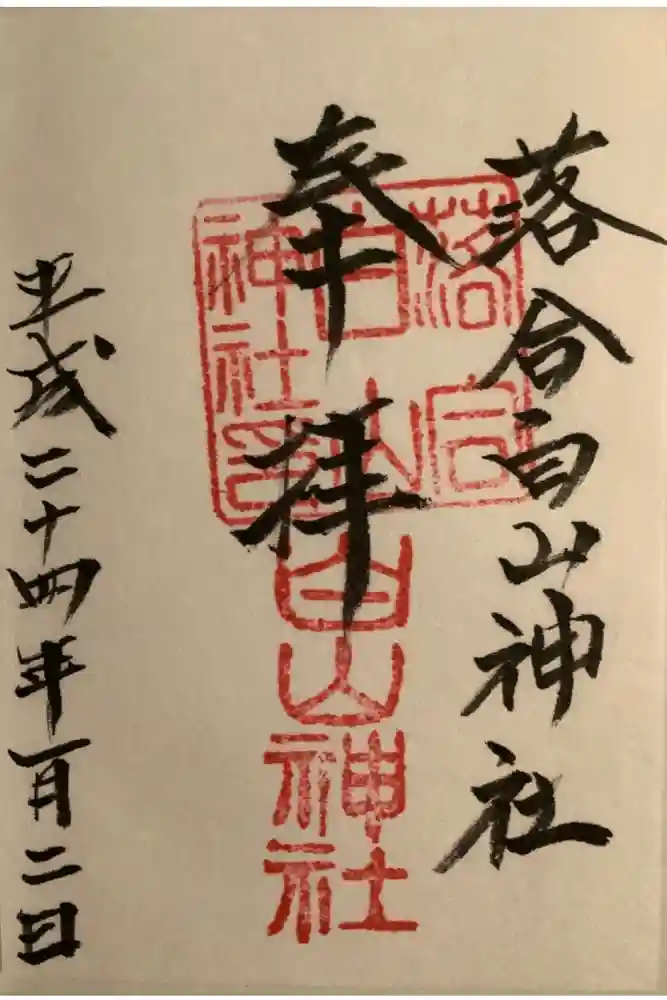 落合白山神社
奉拝
落合
白山
神社印
白山神社
平成二十四年一月二日